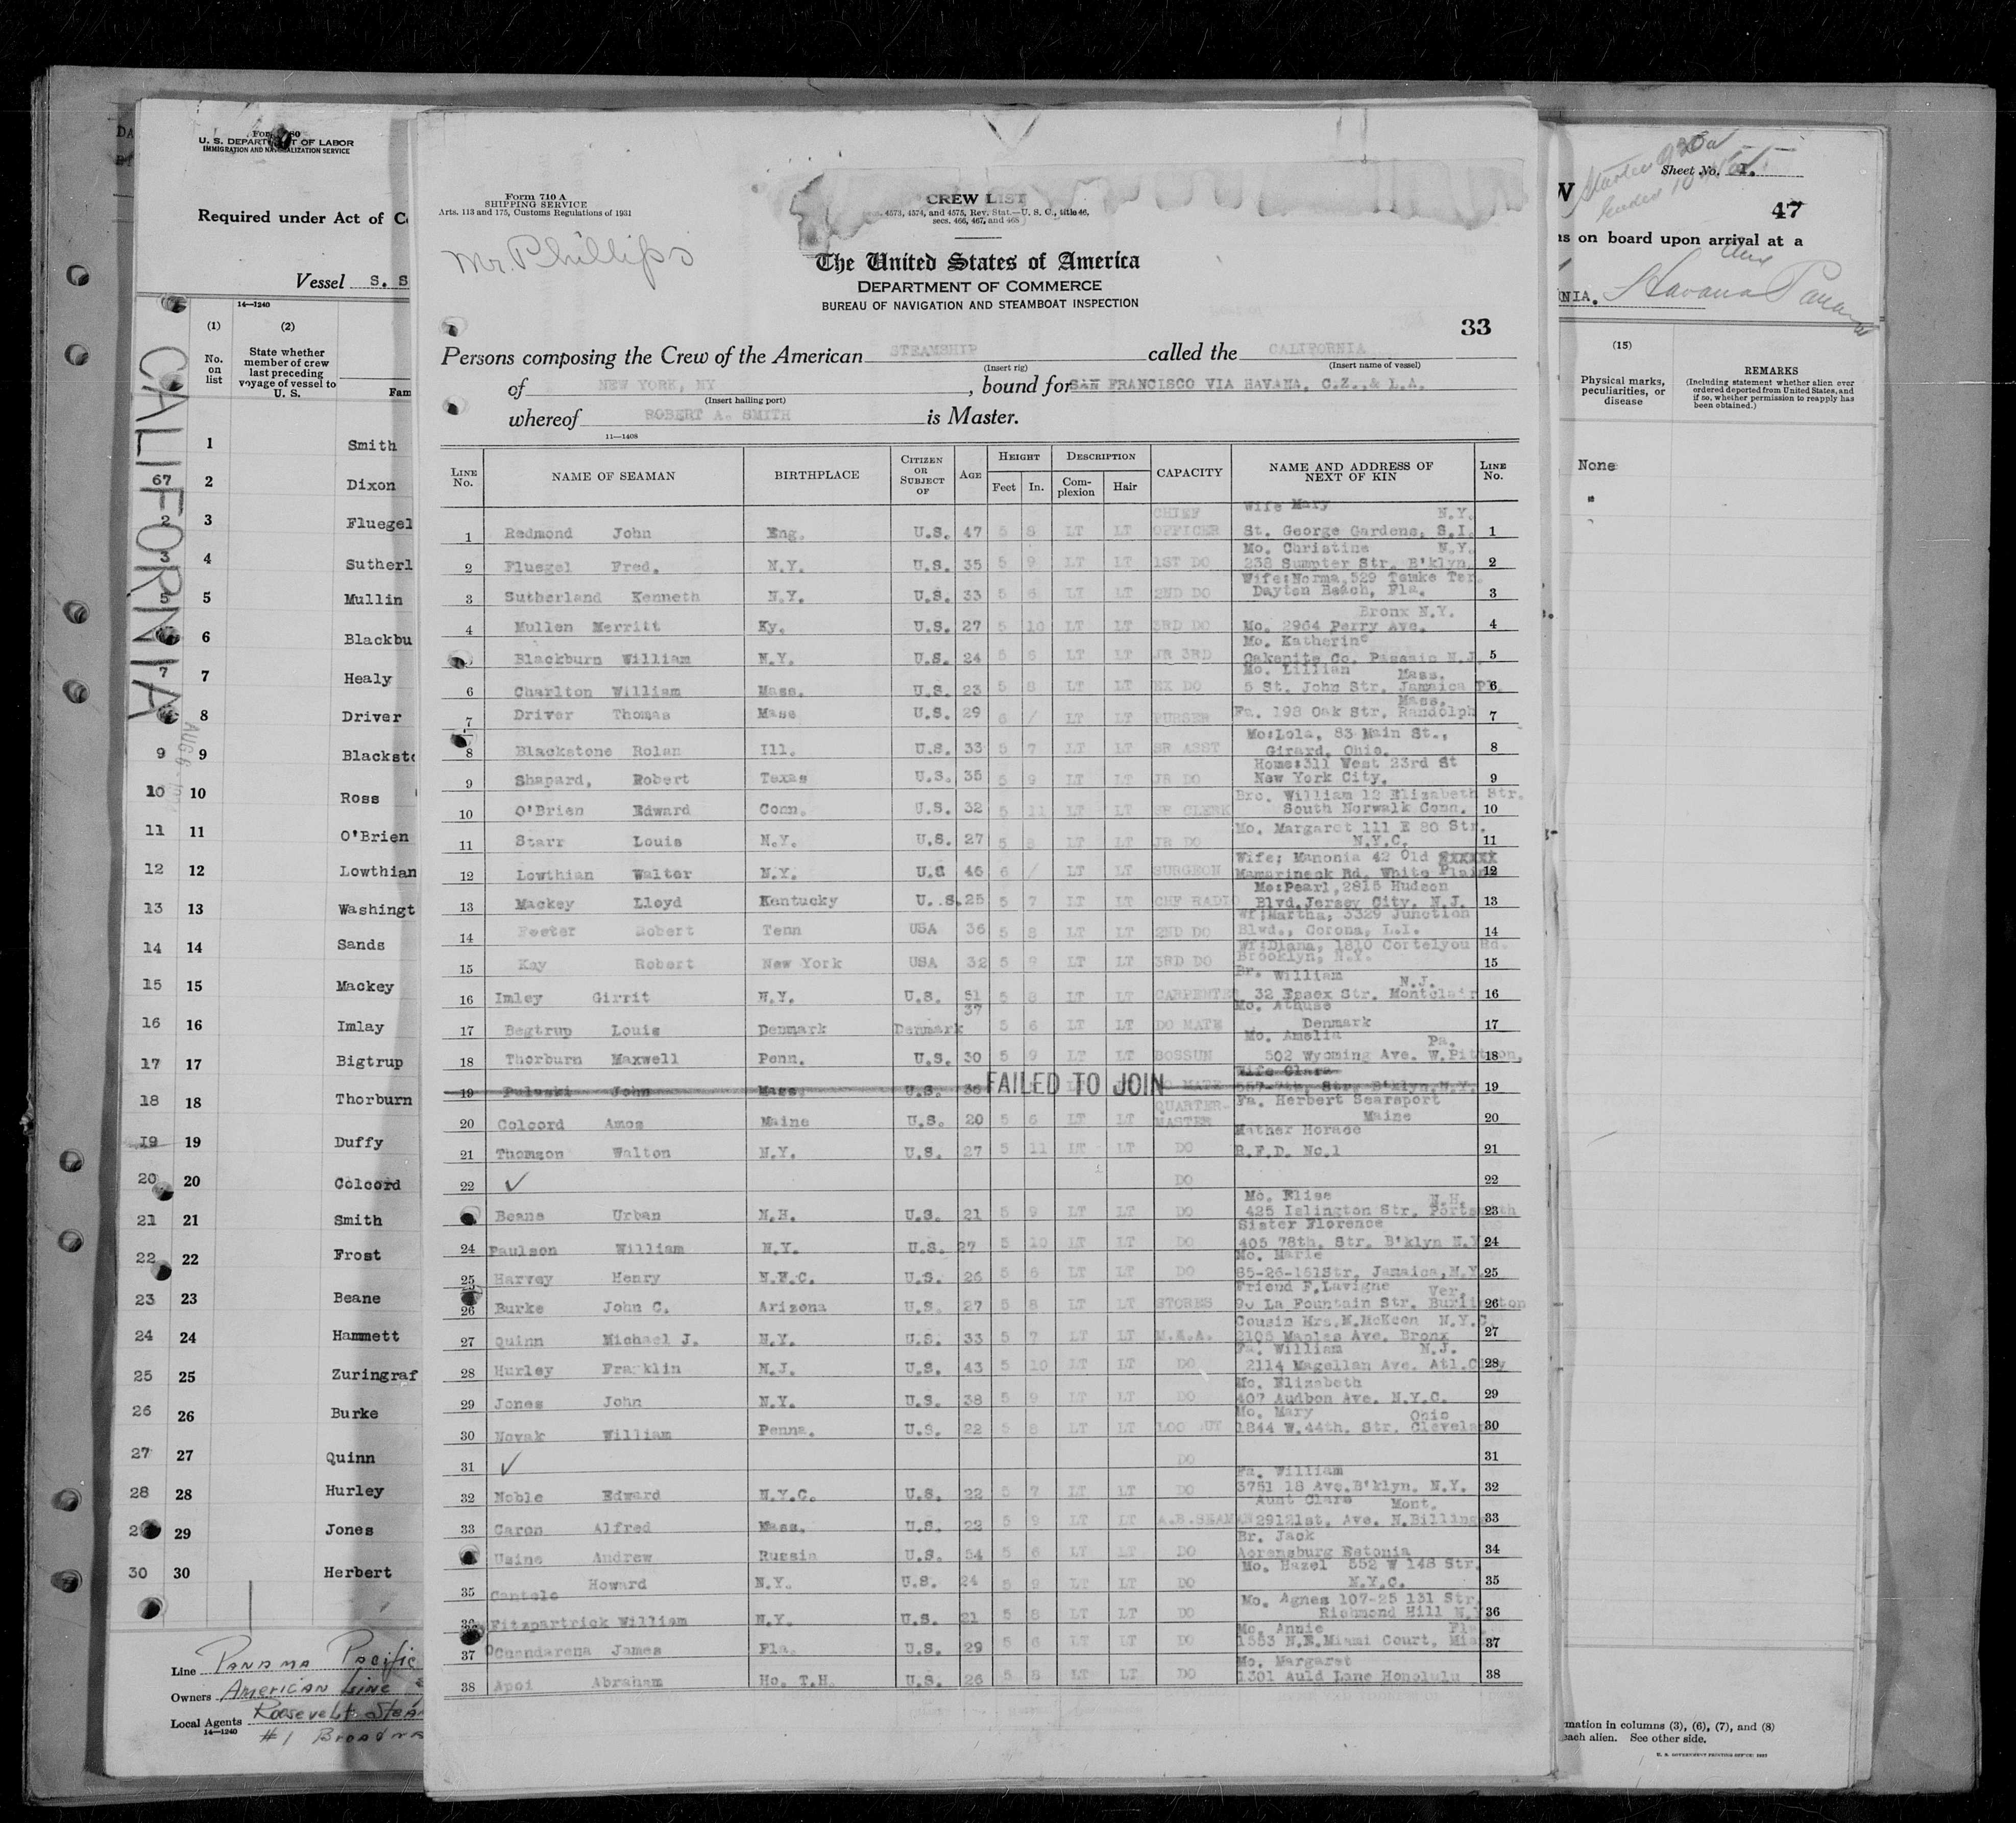 Form 680
U. S. DEPARTMENT OF LABOR
IMMIGRATION AND NATURALIZATION SERVICE
Required under Act of
Vessel S. S
14—1240
(1) (2)
No. on list
State whether member of crew last preceding voyage of vessel to U. S.
Fam
CALIFORNIA
1 Smith
67 2 Dixon
2 3 Fluegel
3 4 Sutherl
5 5 Mullin
6 Blackbu
7 7 Healy
8 Driver
9 9 Blacksto
10 10 Ross
11 11 O'Brien
12 12 Lowthian
13 13 Washingt
14 14 Sands
15 15 Mackey
16 16 Imlay
17 17 Bigtrup
18 18 Thorburn
19 19 Duffy
20 20 Colcord
21 21 Smith
22 22 Frost
23 23 Beane
24 24 Hammett
25 25 Zuringraf
26 26 Burke
27 27 Quinn
28 28 Hurley
2 29 Jones
30 30 Herbert
Line PANAMA PACIFIC
Owners AMERICAN LINE
Local Agents Roosevelt Stea
14—1240
#1 BROADWA
Form 710 A
SHIPPING SERVICE
Arts. 113 and 175, Customs Regulations of 1931
Mr. Phillips
CREW LIST
4573, 4574, and 4575, Rev. Stat.—U. S. C., title 46,
secs. 466, 467, and 468
The United States of America
DEPARTMENT OF COMMERCE
BUREAU OF NAVIGATION AND STEAMBOAT INSPECTION
33
Persons composing the Crew of the American STEAMSHIP called the CALIFORNIA
(Insert rig) (Insert name of vessel)
of NEW YORK, NY, bound for SAN FRANCISCO VIA HAVANA, C.Z.,& L.A.
(Insert hailing port)
whereof ROBERT A. SMITH is Master.
11—1408
LINE No. NAME OF SEAMAN BIRTHPLACE CITIZEN OR SUBJECT OF AGE HEIGHT Feet In. DESCRIPTION Complexion Hair CAPACITY NAME AND ADDRESS OF NEXT OF KIN LINE No.
CHIEF Wife Mary N.Y.
1 Redmond John Eng. U.S. 47 5 8 LT LT OFFICER St. George Gardens, S.I. 1
Mo. Christine N.Y.
2 Fluegel Fred. N.Y. U.S. 35 5 9 LT LT 1ST DO 238 Sumpter Str. B'klyn. 2
Wife:Norma,529 Temke Ter.
3 Sutherland Kenneth N.Y. U.S. 33 5 6 LT LT 2ND DO Dayton Beach, Fla. 3
Bronx N.Y.
4 Mullen Merritt Ky. U.S. 27 5 10 LT LT 3RD DO Mo. 2964 Perry Ave. 4
Mo. Katherine
Blackburn William N.Y. U.S. 24 5 6 LT LT JR 3RD Oakenite Co. Passaic N.J. 5
Mo. Lillian Mass.
6 Charlton William Mass. U.S. 23 5 8 LT LT EX DO 5 St. John Str. Jamaica Pl. 6
Mass.
7 Driver Thomas Mass U.S. 29 6 / LT LT PURSER Fa. 198 Oak Str. Randolph 7
Mo:Lola, 83 Main St.,
8 Blackstone Rolan Ill. U.S. 33 5 7 LT LT SR ASST Girard, Ohio. 8
Home:311 West 23rd St
9 Shapard, Robert Texas U.S. 35 5 9 LT LT JR DO New York City. 9
Bro. William 12 Elizabeth Str.
10 O'Brien Edward Conn. U.S. 32 5 11 LT LT SR CLERK South Norwalk Conn. 10
Mo. Margaret 111 E 80 Str.
11 Starr Louis N.Y. U.S. 27 5 8 LT LT JR DO N.Y.C. 11
Wife; Manonia 42 Old
12 Lowthian Walter N.Y. U.S 46 6 / LT LT SURGEON Mamarineck Rd. White Plain 12
Mo:Pearl,2815 Hudson
13 Mackey Lloyd Kentucky U..S. 25 5 7 LT LT CHF RADIO Blvd.Jersey City, N.J. 13
Wf:Martha, 3329 Junction
14 Foster Robert Tenn USA 36 5 8 LT LT 2ND DO Blvd., Corona, L.I. 14
Wf:Diana, 1810 Cortelyou Rd.
15 Kay Robert New York USA 32 5 9 LT LT 3RD DO Brooklyn, N.Y. 15
Br. William N.J.
16 Imley Girrit N.Y. U.S. 51 5 8 LT LT CARPENTER 32 Essex Str. Montclair 16
37 Mo. Athuse
17 Begtrup Louis Denmark Denmark 5 6 LT LT DO MATE Denmark 17
Mo. Amelia Pa.
18 Thorburn Maxwell Penn. U.S. 30 5 9 LT LT BOSSUN 502 Wyoming Ave. W.Pittson, 18
Wife Clara
19 Pulaski John Mass U.S. 36 FAILED TO JOIN MATE 557-7th. Str. B'klyn.N.Y. 19
QUARTER- Fa. Herbert Searsport
20 Colcord Amos Maine U.S. 20 5 6 LT LT MASTER Maine 20
Mather Horace
21 Thomson Walton N.Y. U.S. 27 5 11 LT LT DO R.F.D. No.1 21
22 ✓ DO 22
Mo. Elise N.H.
Beane Urban N.H. U.S. 21 5 9 LT LT DO 425 Islington Str. Portsmouth 23
Sister Florence
24 Paulson William N.Y. U.S. 27 5 10 LT LT DO 405 78th. Str. B'klyn N.Y 24
Mo. Marie
25 Harvey Henry N.Y.C. U.S. 26 5 6 LT LT DO 85-26-161Str. Jamaica,N.Y. 25
Friend F.Lavigne Ver.
26 Burke John C. Arizona U.S. 27 5 8 LT LT STORES 90 La Fountain Str. Burlington 26
Cousin Mrs.M.McKeon N.Y.C.
27 Quinn Michael J. N.Y. U.S. 33 5 7 LT LT M.A.A. 2105 Maples Ave. Bronx 27
Fa. William N.J.
28 Hurley Franklin N.J. U.S. 43 5 10 LT LT DO 2114 Magellan Ave. Atl.City 28
Mo. Elizabeth
29 Jones John N.Y. U.S. 38 5 9 LT LT DO 407 Audbon Ave. N.Y.C. 29
Mo. Mary Ohio
30 Novak William Penna. U.S. 22 5 8 LT LT LOO UT 1844 W.44th. Str. Clevela 30
31 ✓ DO 31
Fa. William
32 Noble Edward N.Y.C. U.S. 22 5 7 LT LT DO 3751 18 Ave.B'klyn. N.Y. 32
Aunt Clare Mont.
33 Caron Alfred Mass. U.S. 22 5 9 LT LT A.B.SEAMAN 29121st. Ave. N.Billing 33
Br. Jack
Usine Andrew Russia U.S. 54 5 6 LT LT DO Aerensburg Estonia 34
Mo. Hazel 552 W 148 Str.
35 Cantele Howard N.Y. U.S. 24 5 9 LT LT DO N.Y.C. 35
Mo. Agnes 107-25 131 Str.
36 Fitzpartrick William N.Y. U.S. 21 5 8 LT LT DO Richmond Hill N.Y 36
Mo. Annie Fla.
37 Cuendarena James Fla. U.S. 29 5 6 LT LT DO 1553 N.E.Miami Court. Mia 37
Mo. Margaret
38 Apoi Abraham Ho. T.H. U.S. 26 5 8 LT LT DO 1301 Auld Lane Honolulu 38
Sheet No. 1.
47
ns on board upon arrival at a
NIA. Havana Panama
(15)
Physical marks, peculiarities, or disease
REMARKS
(Including statement whether alien ever ordered deported from United States, and if so, whether permission to reapply has been obtained.)
None
"
rmation in columns (3), (6), (7), and (8)
each alien. See other side.
U. S. GOVERNMENT PRINTING OFFICE: 1937